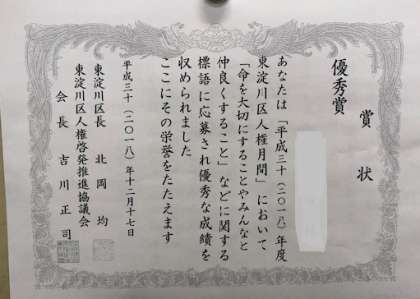 賞状
優秀賞
あなたは「平成三十(二〇一八)年度
東淀川区人権月間」において
「命を大切にすることやみんなと
仲良くすること」などに関する
標語に応募され優秀な成績を
収められました
ここにその栄誉をたたえます
平成三十(二〇一八)年十二月十七日
東淀川区長 北岡均
東淀川区人権啓発推進協議会
会長 吉川正司